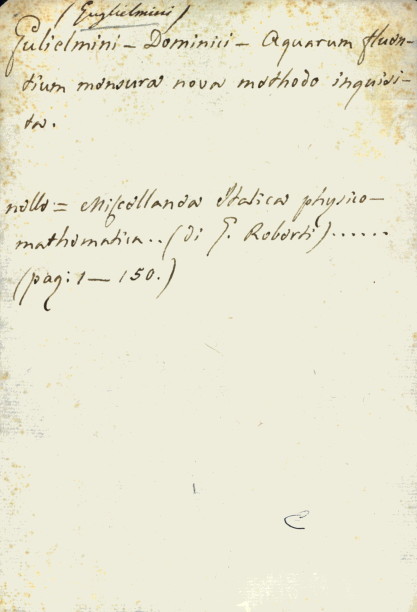 (Guglielmini)
Gulielmini - Dominici - Aquarum fluen-
tium mensura nova methodo inquisi-
ta.
nelle = Miscellanea Italica physico-
mathematica.. (di G. Roberti)......
(pag: 1 - 150.)